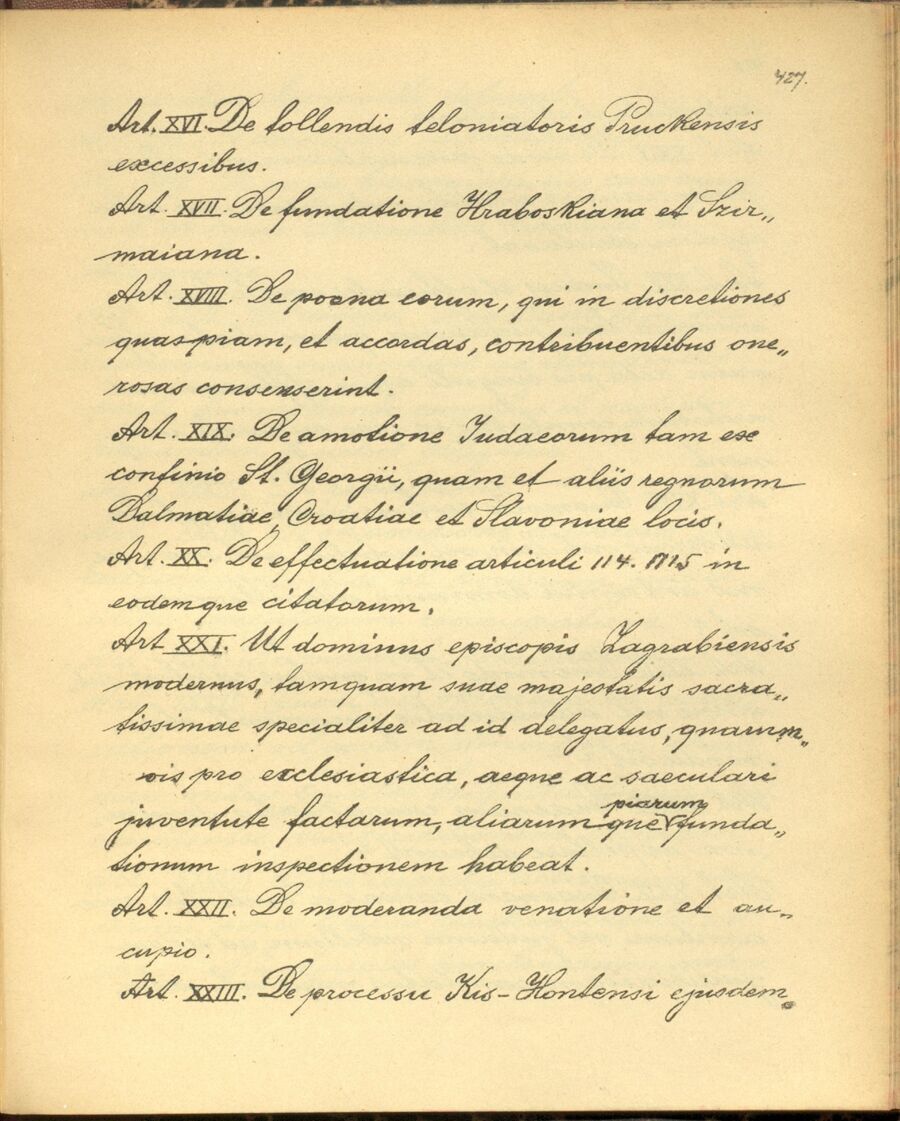 427.
Art. XVI. De tollendis teloniatoris Pruckensis
excessibus.
Art. XVII. De fundatione Hraboskiana et Szir„
maiana.
Art. XVIII. De poena eorum, qui in discretiones
quaspiam, et accordas, contribuentibus one„
rosas consenserint.
Art. XIX. De amotione Judaeorum tam ex
confinio St. Georgii, quam et aliis regnorum
Dalmatiae, Croatiae et Slavoniae locis.
Art. XX. De effectuatione articuli 114. 1715 in
eodemque citatorum.
Art XXI. Ut dominus episcopis Zagrabiensis
modernus, tamquam suae majestatis sacra„
tissimae specialiter ad id delegatus, quarum„
vis pro ecclesiastica, aeque ac saeculari
piarum
juventute factarum, aliarumque funda„
tionum inspectionem habeat.
Art. XXII. De moderanda venatione et au„
cupio.
Art. XXIII. De processu Kis-Hontensi ejusdem„